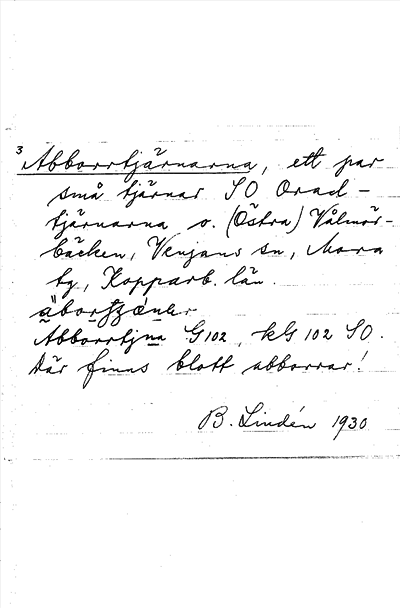 3 Abborrtjärnarna, ett par
små tjärnar SO Orad-
tjärnarna o. (Östra) Vålmör-
bäcken, Venjans sn, Mora
tg, Kopparb. län.
Abborrtjna G102, kG 102 SO.
Där finns blott abborrar!
B. Lindén 1930